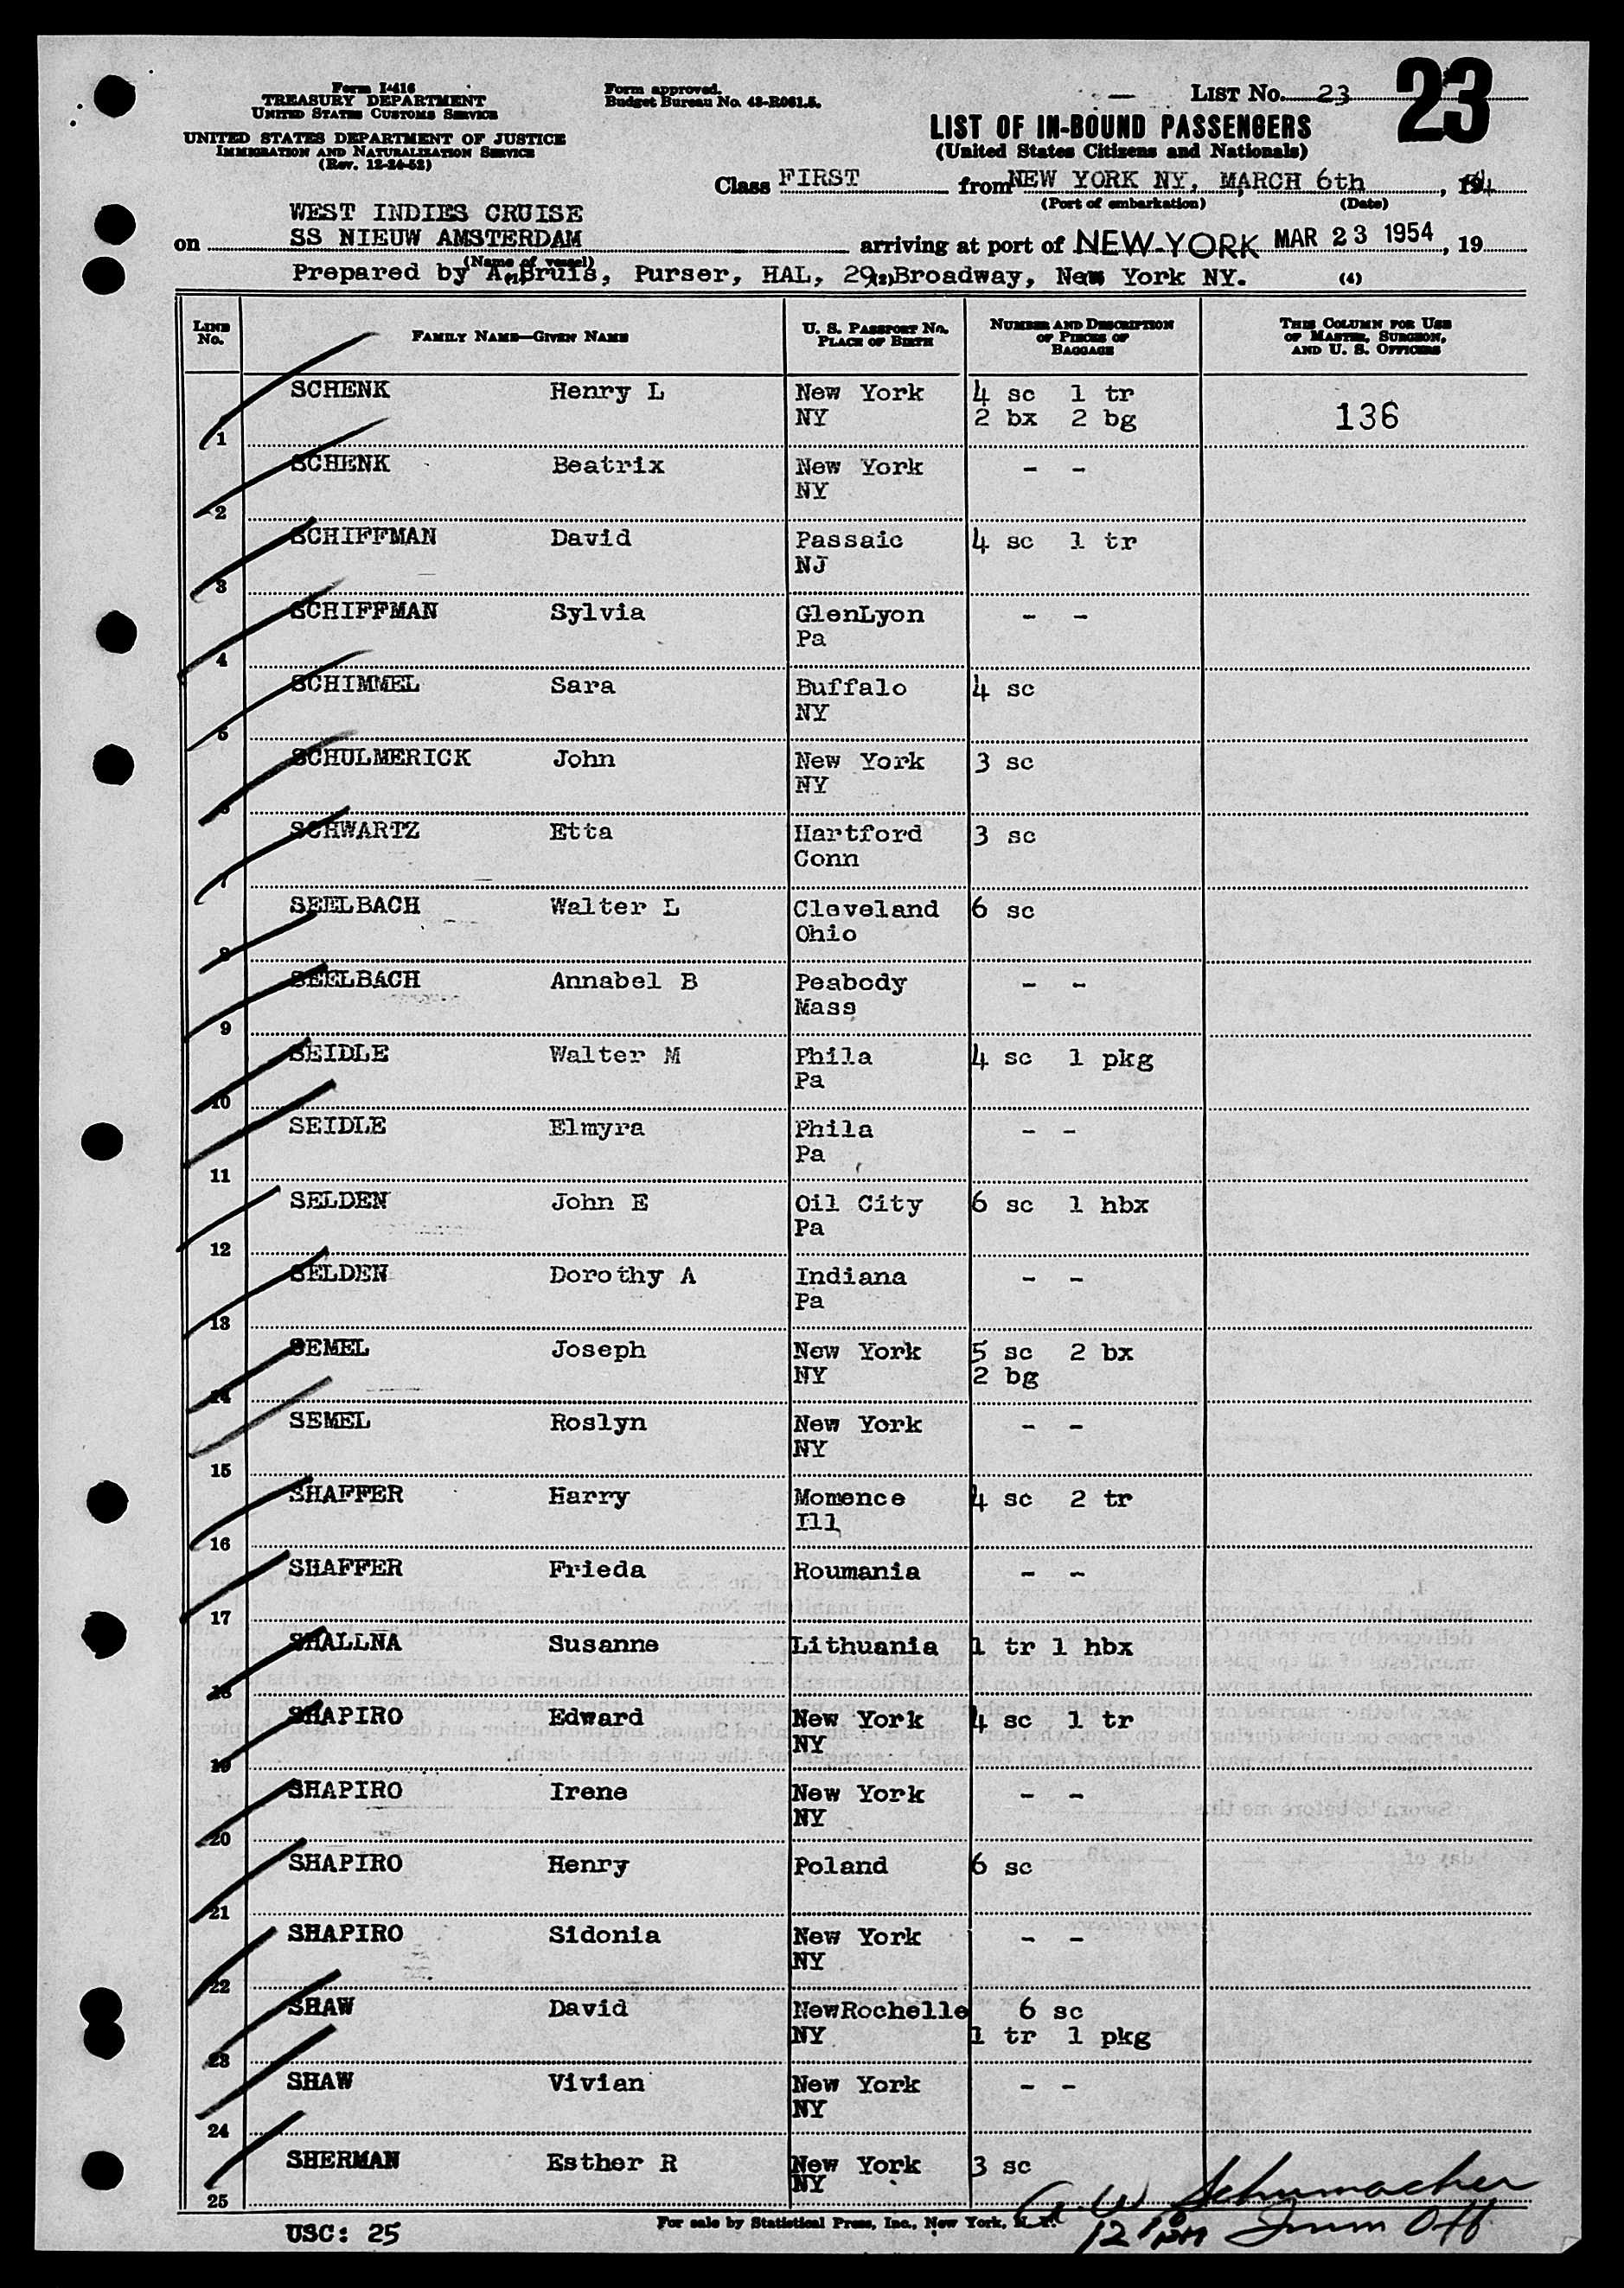 Form I-416
TREASURY DEPARTMENT
UNITED STATES CUSTOMS SERVICE
UNITED STATES DEPARTMENT OF JUSTICE
IMMIGRATION AND NATURALIZATION SERVICE
(Rev. 12-24-52)
Form approved.
Budget Bureau No. 43-R061.5.
LIST No. 23
23
LIST OF IN-BOUND PASSENGERS
(United States Citizens and Nationals)
Class FIRST from NEW YORK NY, MARCH 6th, 19
(Port of embarkation) (Date)
WEST INDIES CRUISE
on SS NIEUW AMSTERDAM arriving at port of NEW-YORK MAR 23 1954, 19
(Name of vessel)
Prepared by A. Bruis, Purser, HAL, 29 Broadway, New York NY. (4)
LINE No. FAMILY NAME—GIVEN NAME U. S. PASSPORT No. PLACE OF BIRTH NUMBER AND DESCRIPTION OF PIECES OF BAGGAGE THIS COLUMN FOR USE OF MASTER, SURGEON, AND U. S. OFFICERS
SCHENK Henry L New York 4 sc 1 tr
1 NY 2 bx 2 bg 136
SCHENK Beatrix New York - -
2 NY
SCHIFFMAN David Passaic 4 sc 1 tr
3 NJ
SCHIFFMAN Sylvia GlenLyon - -
4 Pa
SCHIMMEL Sara Buffalo 4 sc
5 NY
SCHULMERICK John New York 3 sc
6 NY
SCHWARTZ Etta Hartford 3 sc
7 Conn
SEELBACH Walter L Cleveland 6 sc
8 Ohio
SEELBACH Annabel B Peabody - -
9 Mass
SEIDLE Walter M Phila 4 sc 1 pkg
10 Pa
SEIDLE Elmyra Phila - -
11 Pa
SELDEN John E Oil City 6 sc 1 hbx
12 Pa
SELDEN Dorothy A Indiana - -
13 Pa
SEMEL Joseph New York 5 sc 2 bx
14 NY 2 bg
SEMEL Roslyn New York - -
15 NY
SHAFFER Harry Momence 4 sc 2 tr
16 Ill
SHAFFER Frieda Roumania - -
17
SHALLNA Susanne Lithuania 1 tr 1 hbx
18
SHAPIRO Edward New York 4 sc 1 tr
19 NY
SHAPIRO Irene New York - -
20 NY
SHAPIRO Henry Poland 6 sc
21
SHAPIRO Sidonia New York - -
22 NY
SHAW David NewRochelle 6 sc
23 NY 1 tr 1 pkg
SHAW Vivian New York - -
24 NY
SHERMAN Esther R New York 3 sc
25 NY
A. W. Schumacher
USC: 25 For sale by Statistical Press, Inc., New York, N. Y.
Imm Off